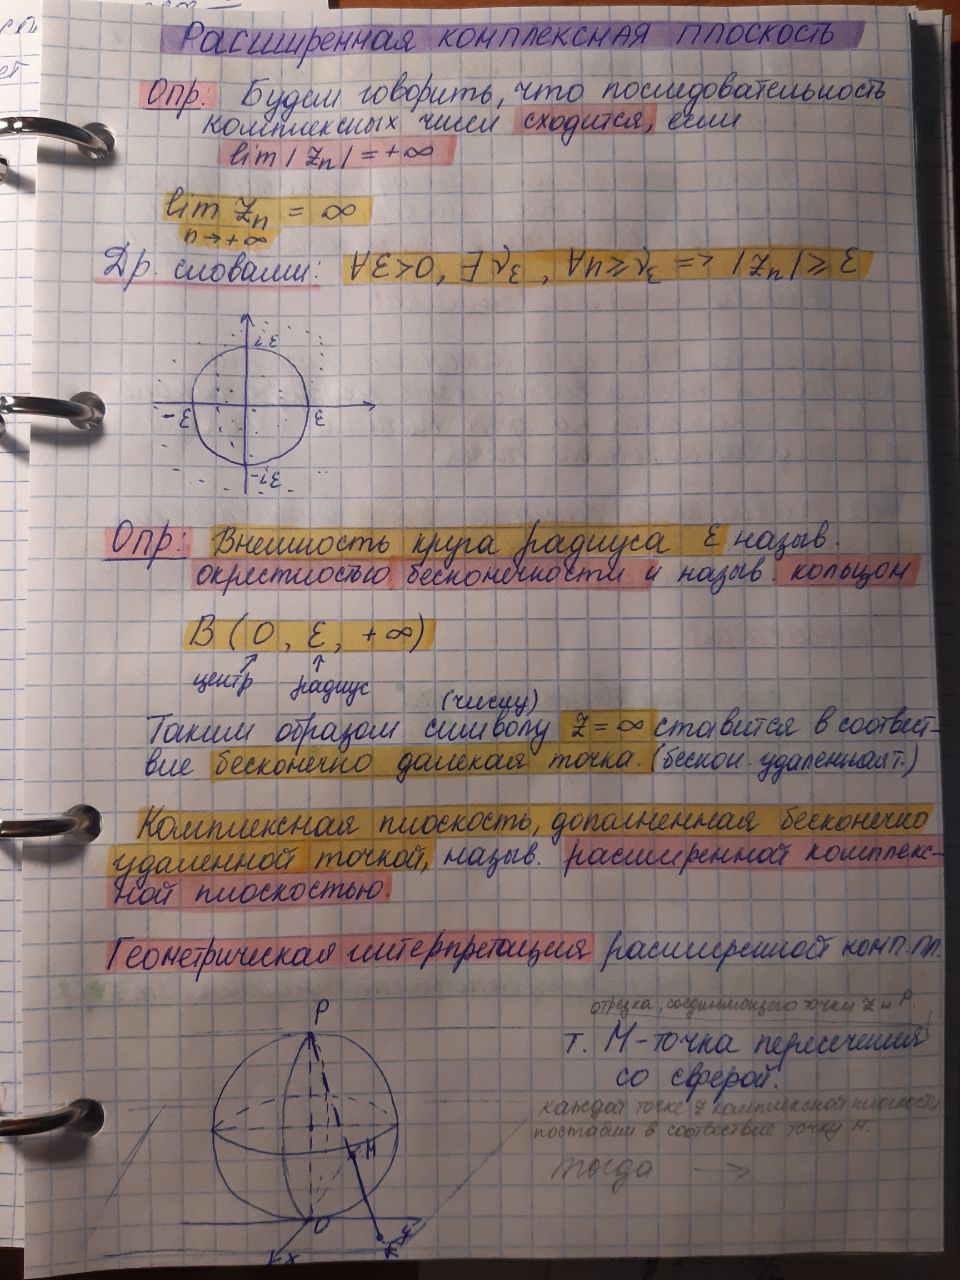 Расширенная комплексная плоскость
Опр: Будем говорить, что последовательность
комплексных чисел сходится, если
lim |Zn| = +∞
lim Zn = ∞
n→+∞
Др. словами: ∀ε>0, ∃nε, ∀n≥nε => |Zn| ≥ ε
εi
-ε ε
-εi
Опр: Внешность круга радиуса ε назыв.
окрестностью бесконечности и назыв. кольцом
B (0, ε, +∞)
центр радиус
(числу)
Таким образом символу z=∞ ставится в соотвест-
вие бесконечно далекая точка. (бескон. удаленная т.)
Комплексная плоскость, дополненная бесконечно
удаленной точкой, назыв. расширенной комплекс-
ной плоскостью.
Геометрическая интерпретация расширенной комп. пл.
отрезка, соединяющего точки z и P.
т. M-точка пересечения
со сферой.
каждой точке z комплексной плоскости
поставим в соотвествие точку M.
тогда →
P
M
O
x y
z